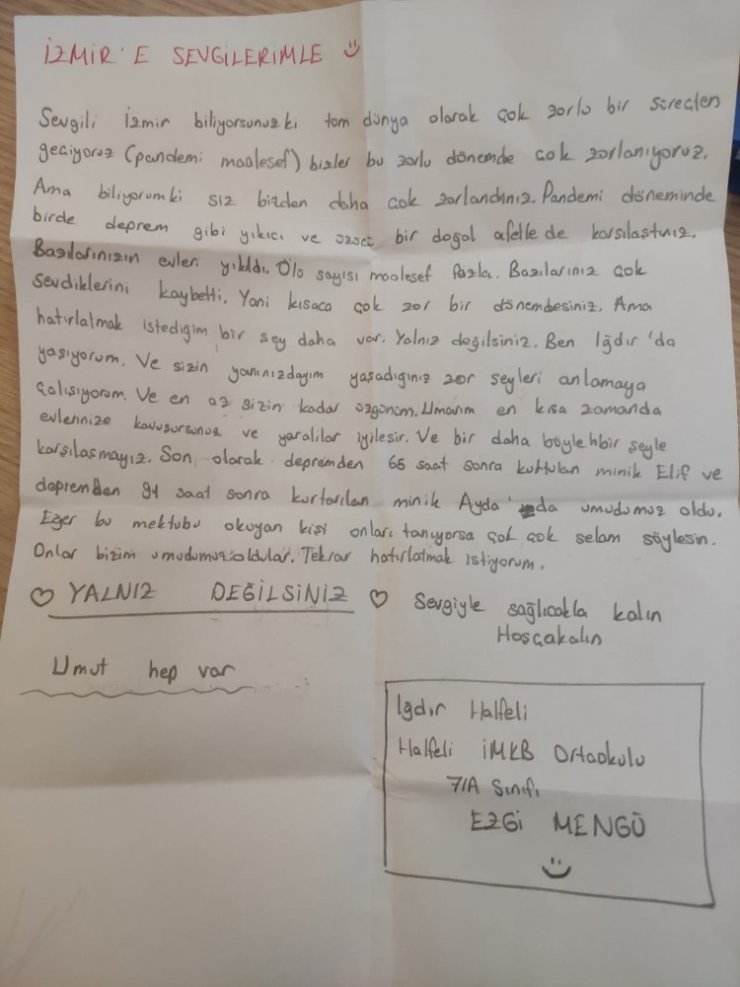 İZMİR'E SEVGİLERİMLE
Sevgili İzmir biliyorsunuzki tom dünya olarak çok zorlu bir süreçten
geçiyoruz (pandemi maalesef) bizler bu zorlu dönemde çok zorlanıyoruz.
Ama biliyorumki siz bizden daha çok zorlandınız. Pandemi döneminde
birde deprem gibi yıkıcı ve üzücü bir doğal afetle de karşılaştınız.
Bazılarınızın evleri yıkıldı. Ölü sayısı maalesef fazla. Bazılarınız çok
sevdiklerini kaybetti. Yani kısaca çok zor bir dönemdesiniz. Ama
hatırlatmak istediğim bir şey daha var. Yalnız değilsiniz. Ben Iğdır'da
yaşıyorum. Ve sizin yanınızdayım yaşadığınız zor şeyleri anlamaya
çalışıyorum. Ve en az sizin kadar üzgünüm. Umarım en kısa zamanda
evlerinize kavuşursunuz ve yaralılar iyileşir. Ve bir daha böyle bir şeyle
karşılaşmayız. Son olarak depremden 65 saat sonra kurtulan minik Elif ve
depremden 91 saat sonra kurtarılan minik Ayda'da umudumuz oldu.
Eğer bu mektubu okuyan kişi onları tanıyorsa çok çok selam söylesin.
Onlar bizim umudumuz oldular. Tekrar hatırlatmak istiyorum.
♡ YALNIZ DEĞİLSİNİZ ♡ Sevgiyle sağlıcakla kalın
Hoşçakalın
Umut hep var
Iğdır Halfeli
Halfeli İMKB Ortaokulu
7/A Sınıfı
EZGİ MENGÜ